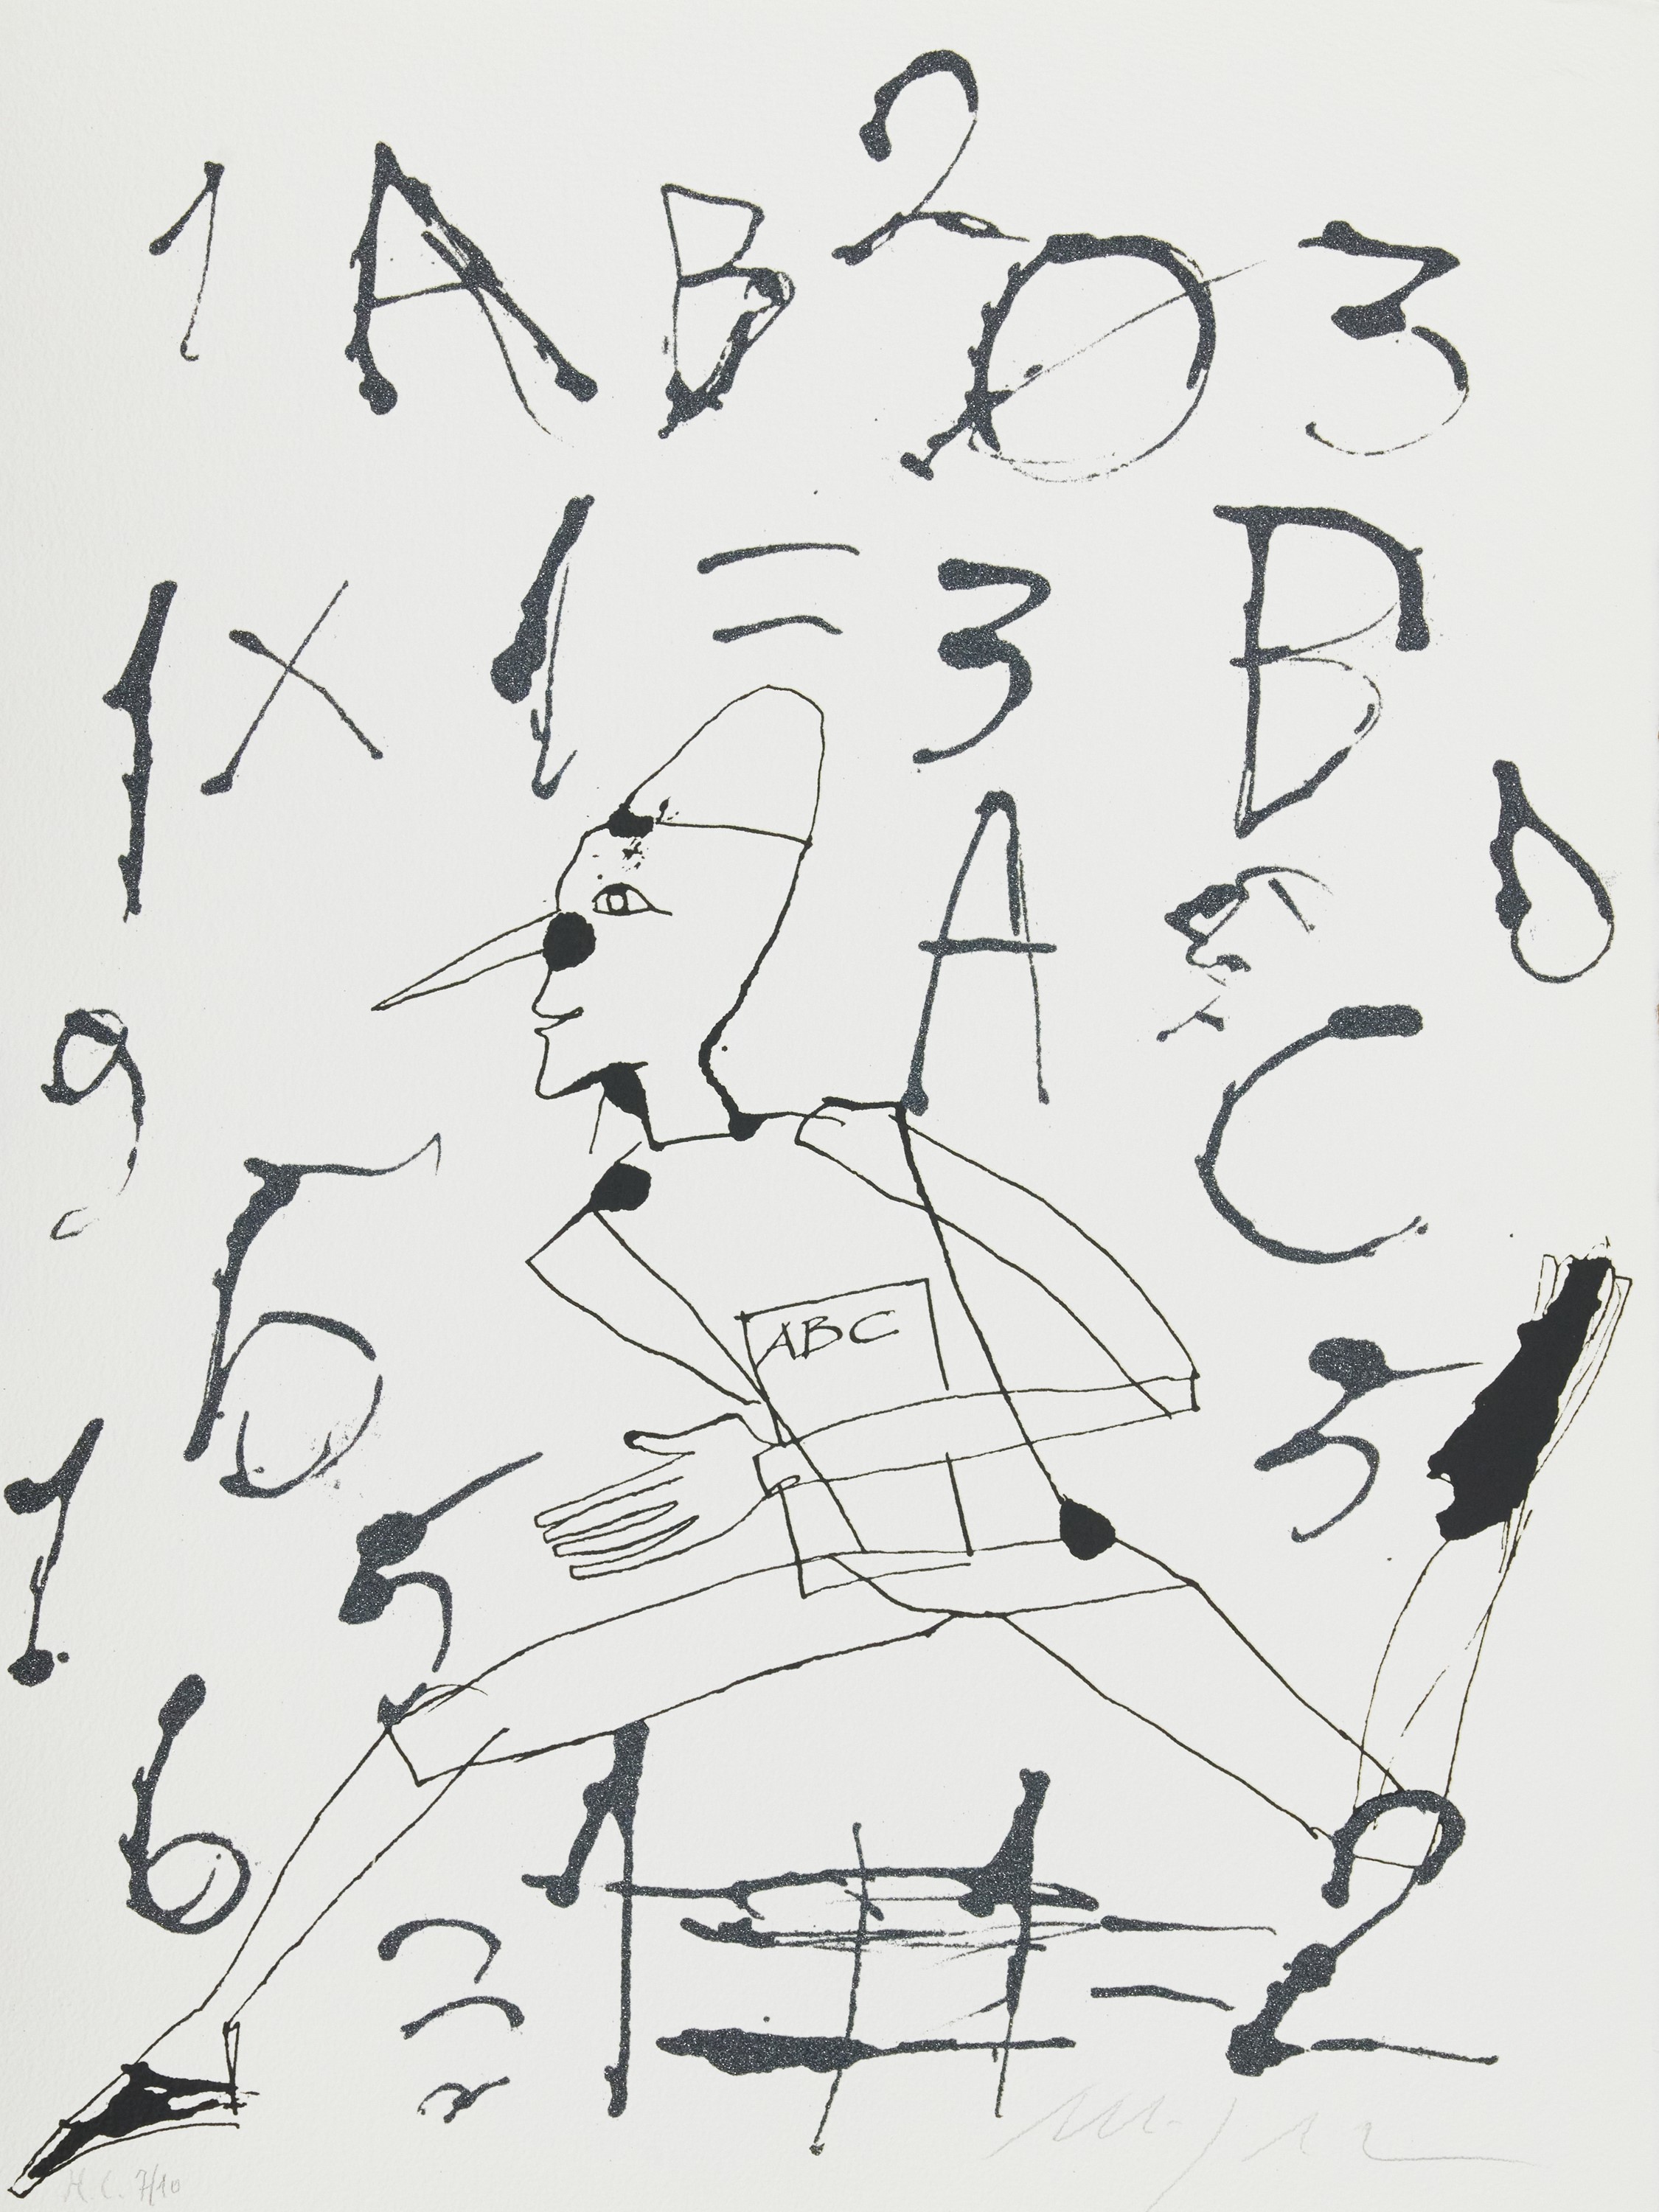 1 A B 2 0 3
1 x 1 = 3 B
A
0
9
C
5
ABC
1
5
5
6
1
1 = 2
H.C. 7/10